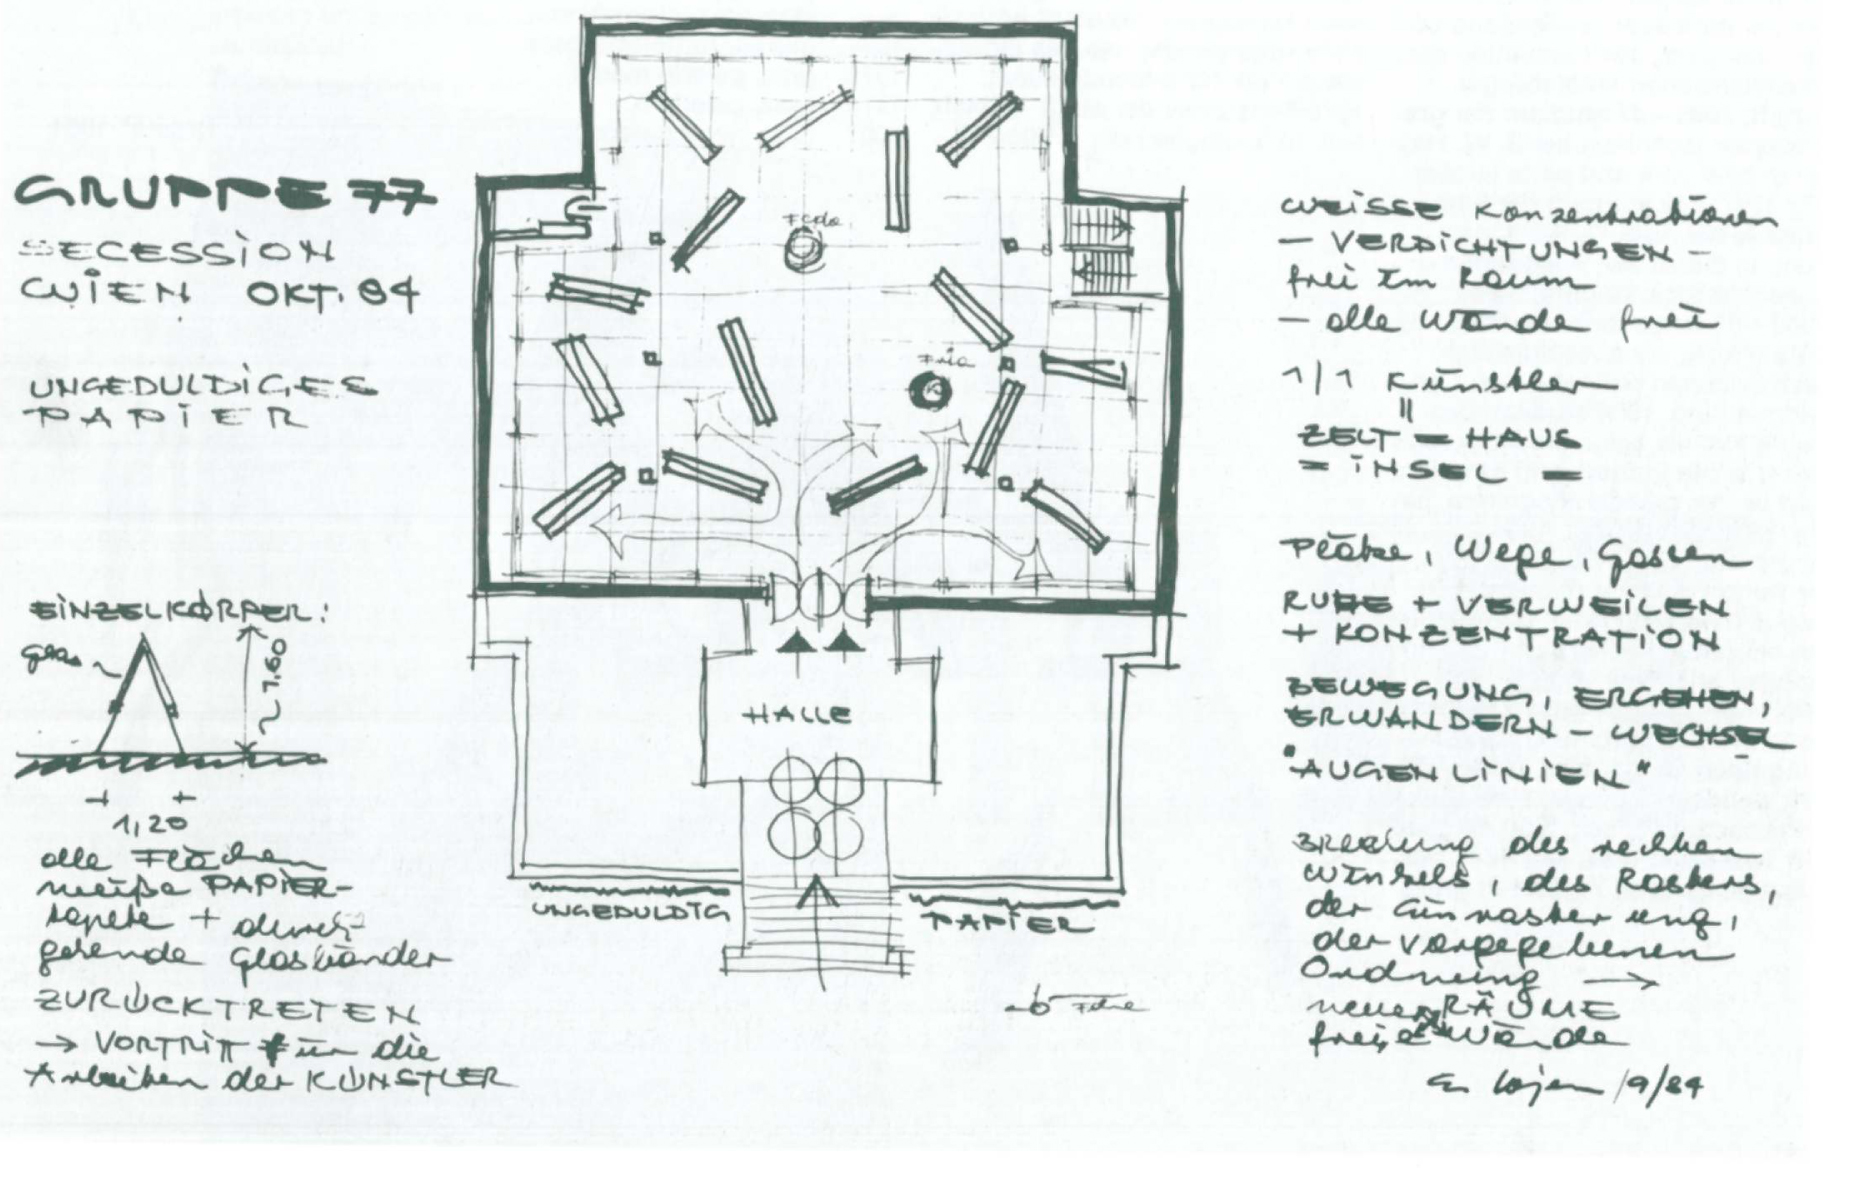 GRUPPE 77
SECESSION
WIEN OKT. 84
UNGEDULDIGES
PAPIER
EINZELKÖRPER:
glas
~ 1,60
1,20
alle Flächen
weiße PAPIER-
tapete + durch-
gehende Glasbänder
ZURÜCKTRETEN
→ VORTRITT für die
Arbeiten der KÜNSTLER
Feda
Feda
HALLE
UNGEDULDIG
PAPIER
WEISSE Konzentrationen
– VERDICHTUNGEN –
frei im Raum
– alle Wände frei
1/1 Künstler
=
ZELT = HAUS
= INSEL =
Plätze, Wege, Gassen
RUHE + VERWEILEN
+ KONZENTRATION
BEWEGUNG, ERGEHEN,
ERWANDERN – WECHSEL
"AUGENLINIEN"
Brechung des rechten
Winkels, des Rasters,
der Einrasterung,
der vorgegebenen
Ordnung →
neue RÄUME
freie Wände
/9/84